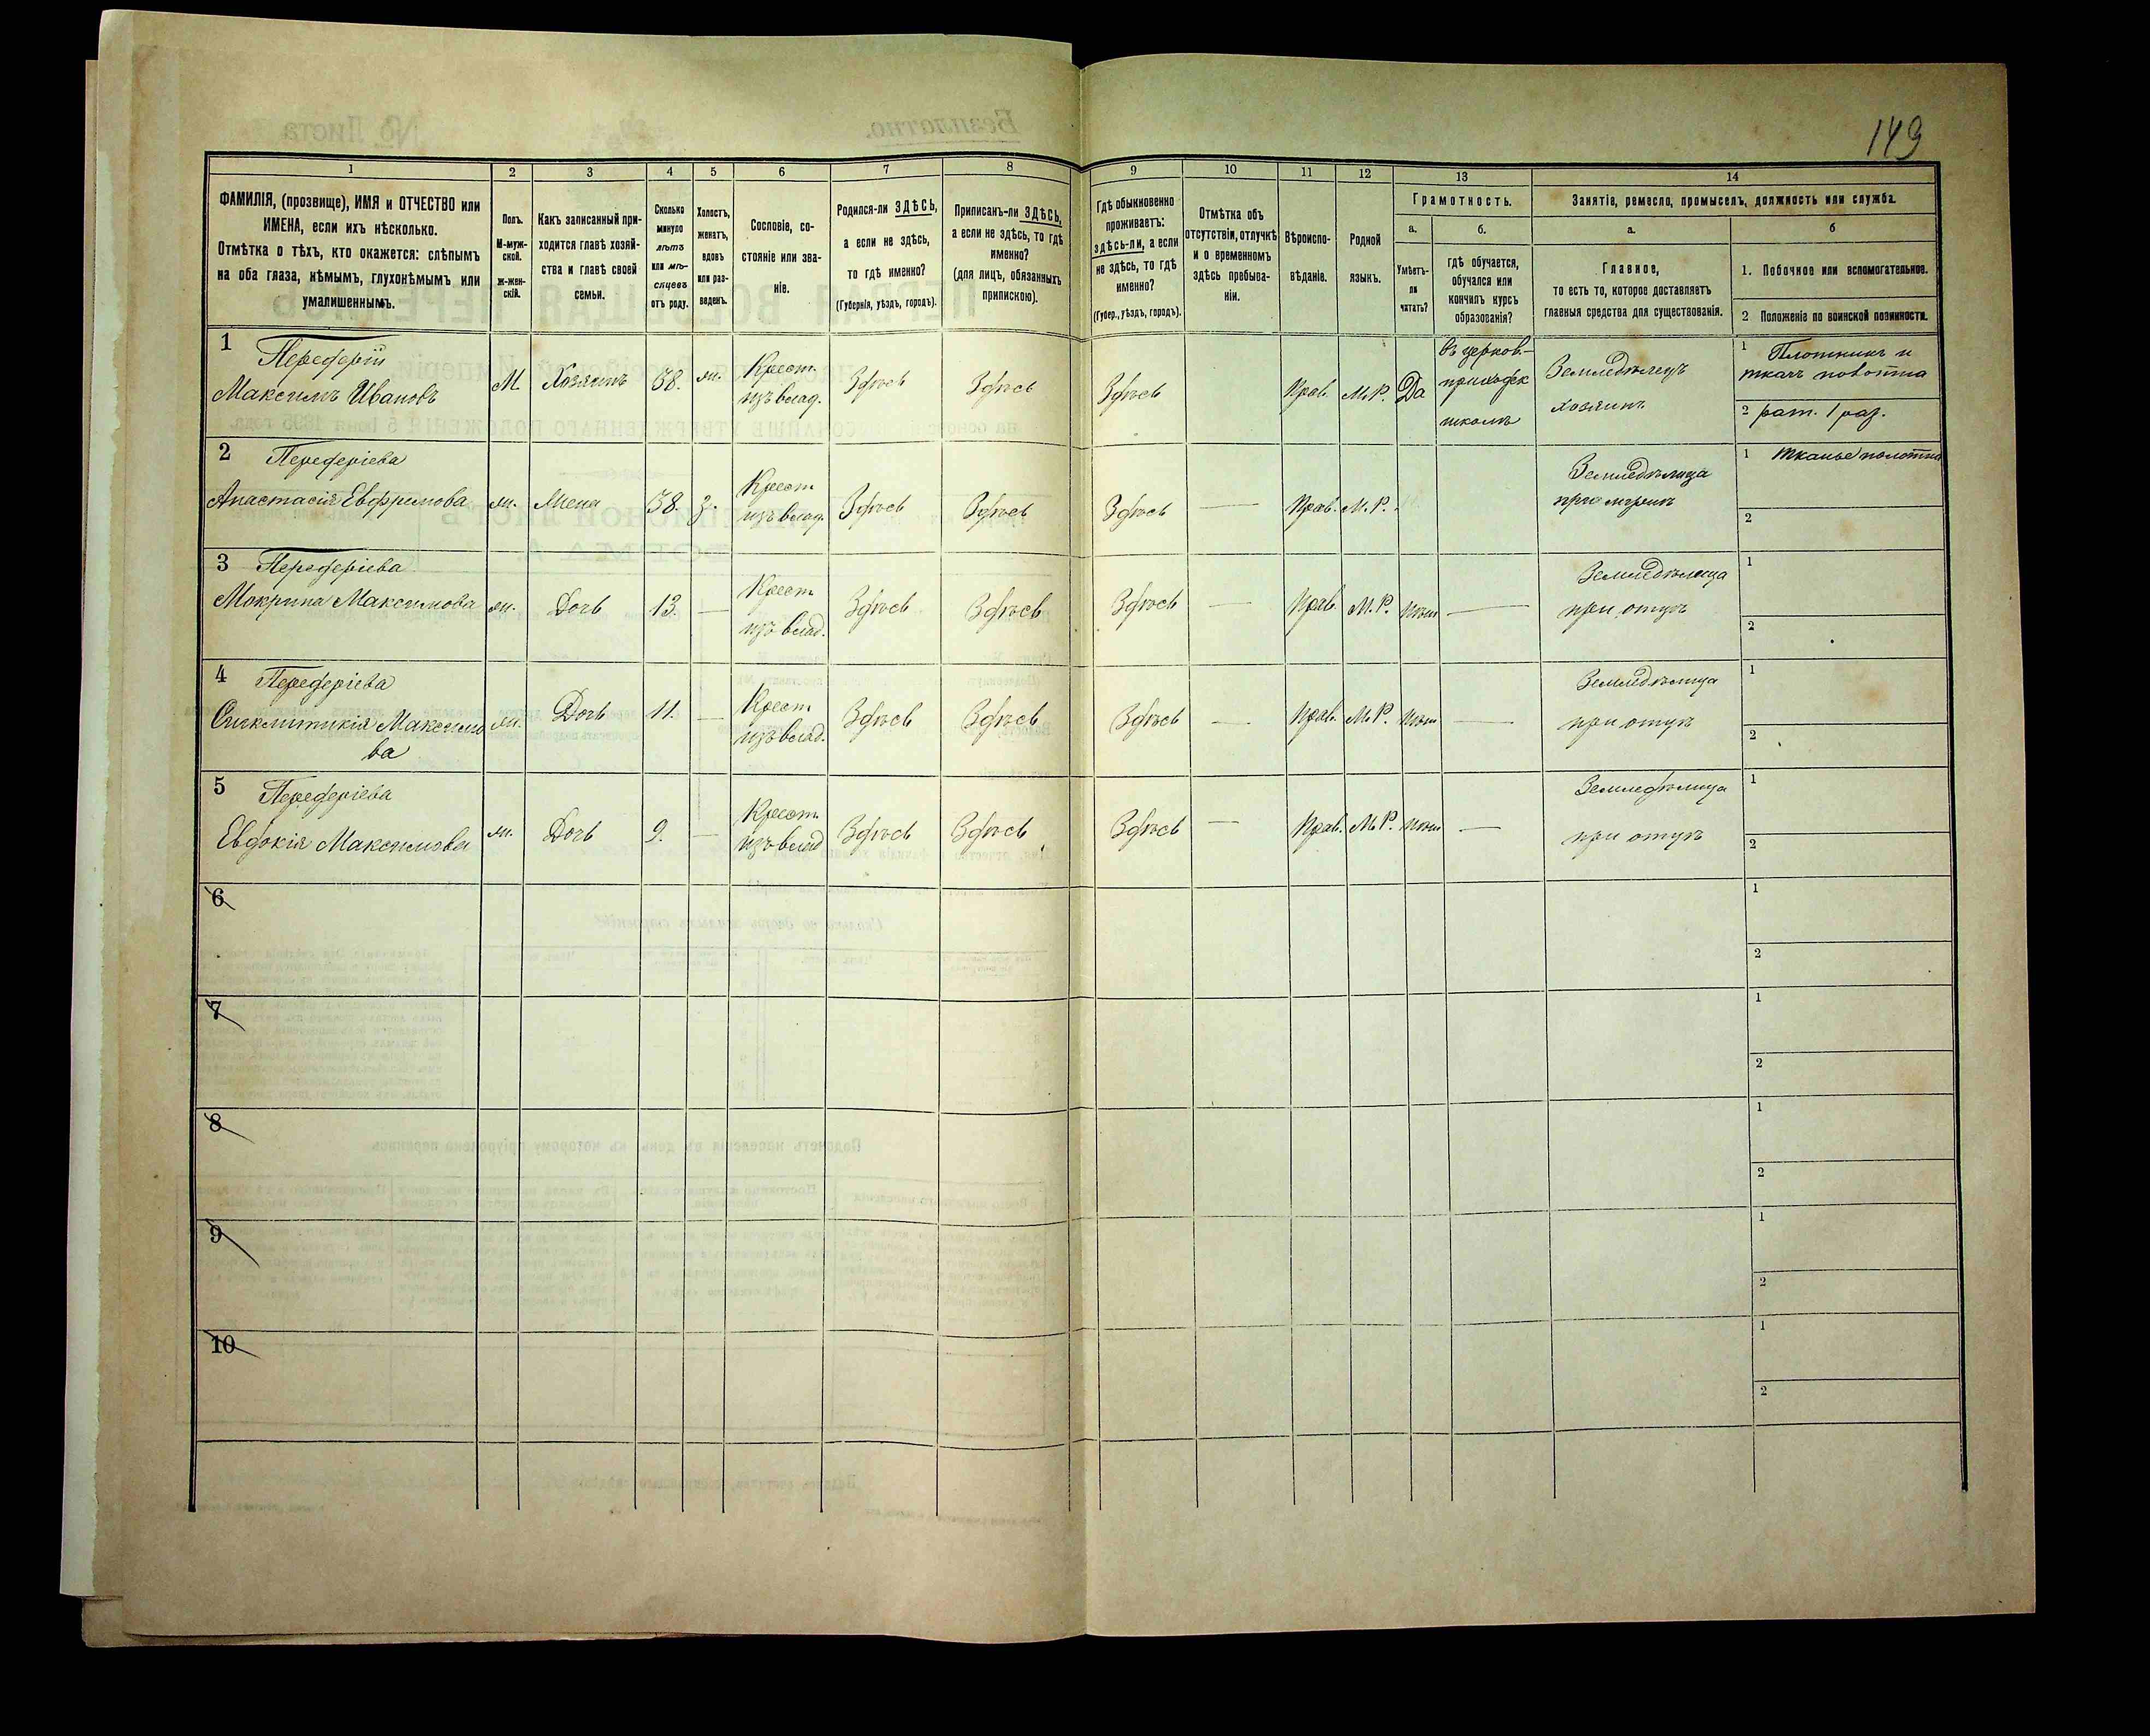 149
1 2 3 4 5 6 7 8 9 10 11 12 13 14
ФАМИЛІЯ, (прозвище), ИМЯ и ОТЧЕСТВО или
ИМЕНА, если ихъ нѣсколько.
Отмѣтка о тѣхъ, кто окажется: слѣпымъ
на оба глаза, нѣмымъ, глухонѣмымъ или
умалишеннымъ.
Полъ.
М-муж-
ской.
ж-жен-
скій.
Какъ записанный при-
ходится главѣ хозяй-
ства и главѣ своей
семьи.
Сколько
минуло
лѣтъ
или мѣ-
сяцевъ
отъ роду.
Холостъ,
женатъ,
вдовъ
или раз-
веденъ.
Сословіе, со-
стояніе или зва-
ніе.
Родился-ли ЗДѢСЬ,
а если не здѣсь,
то гдѣ именно?
(Губернія, уѣздъ, городъ).
Приписанъ-ли ЗДѢСЬ,
а если не здѣсь, то гдѣ
именно?
(для лицъ, обязанныхъ
припискою).
Гдѣ обыкновенно
проживаетъ:
здѣсь-ли, а если
не здѣсь, то гдѣ
именно?
(Губер., уѣздъ, городъ).
Отмѣтка объ
отсутствіи, отлучкѣ
и о временномъ
здѣсь пребыва-
ніи.
Вѣроиспо-
вѣданіе.
Родной
языкъ.
Грамотность.
а. б.
Умѣетъ-
ли
читать?
гдѣ обучается,
обучался или
кончилъ курсъ
образованія?
Занятія, ремесло, промыселъ, должность или служба.
а. б
Главное,
то есть то, которое доставляетъ
главныя средства для существованія.
1. Побочное или вспомогательное.
2 Положеніе по воинской повинности.
1 Переферій
Максимъ Ивановъ М. Хозяинъ 38. ж. Крест. изъ влад. Здѣсь Здѣсь Здѣсь Прав. М.Р. Да
въ церков.-
приходск
школѣ
Земледѣлецъ
хозяинъ
1 Плотникъ и
ткачъ
2 рат. 1 раз.
2 Переферіева
Анастасія Евфремова ж. Жена 38. з. Крест изъ влад. Здѣсь Здѣсь Здѣсь — Прав. М.Р.
Земледѣлица
при мужѣ
1 тканье полотна
2
3 Переферіева
Мокрина Максимова ж. Дочь 13. — Крест изъ влад. Здѣсь Здѣсь Здѣсь — Прав. М.Р. нѣт —
Земледѣлица
при отцѣ
1
2
4 Переферіева
Синклитикія Максимо
ва
ж. Дочь 11. — Крест изъ влад. Здѣсь Здѣсь Здѣсь — Прав. М.Р. нѣт —
Земледѣлица
при отцѣ
1
2
5 Переферіева
Евдокія Максимова ж. Дочь 9. — Крест изъ влад Здѣсь Здѣсь Здѣсь — Прав. М.Р. нѣт —
Земледѣлица
при отцѣ
1
2
6
1
2
7
1
2
8
1
2
9
1
2
10
1
2